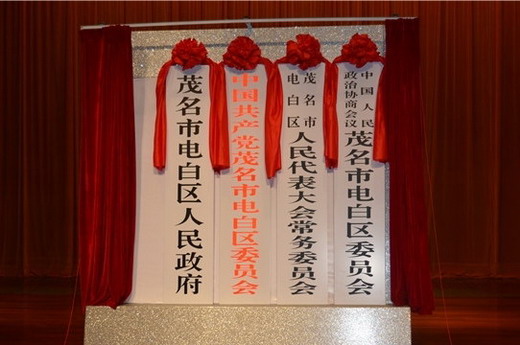 茂名市电白区人民政府
中国共产党茂名市电白区委员会
茂名市
电白区
人民代表大会常务委员会
中国人民
政治协商会议
茂名市电白区委员会